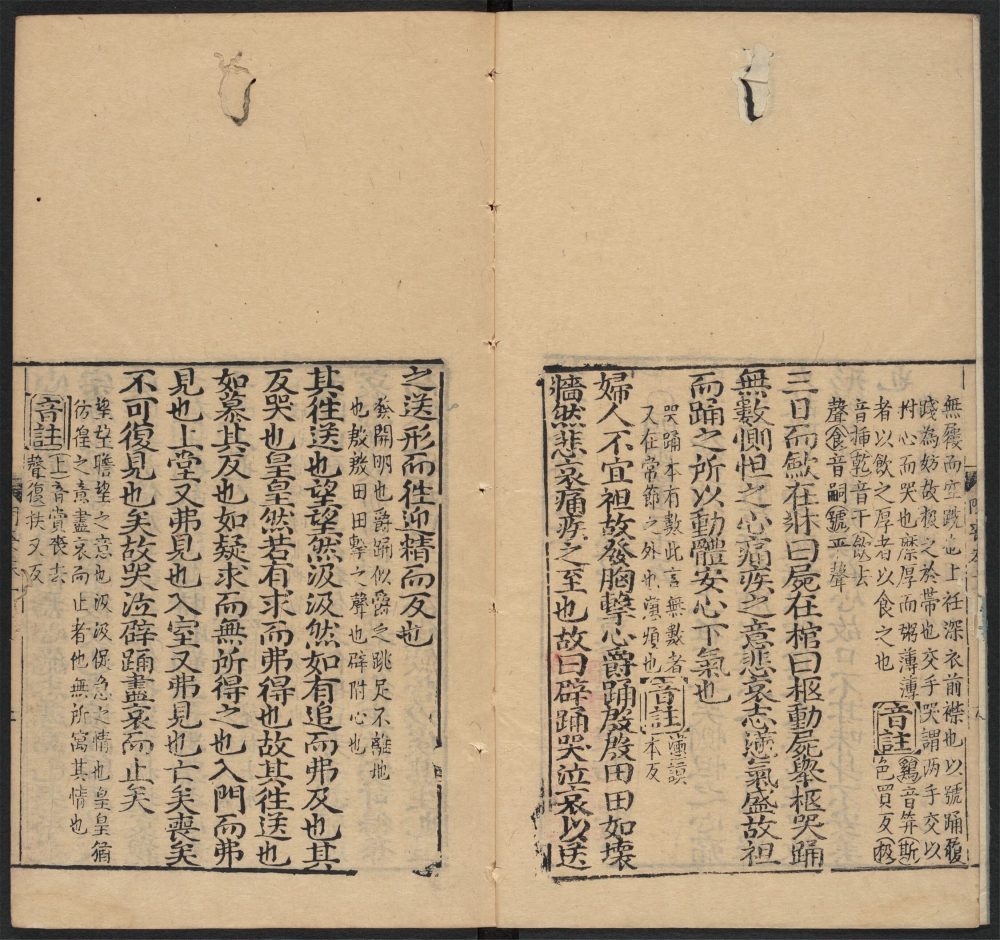 無屨而空跣也上衽深衣前襟也以號踊履
踐為妨故扱之於帶也交手哭謂两手交以
拊心而哭也糜厚而粥薄薄
者以飲之厚者以食之也
音註
鷄音笄斯
色買反扱
音揷乾音干飲去
聲食音嗣號平聲
三日而斂在牀曰屍在棺曰柩動屍舉柩哭踊
無數惻怛之心痛疾之意悲哀志懣氣盛故袒
而踊之所以動體安心下氣也
哭踊本有數此言無數者
又在常節之外也懣煩也
音註
懣謨
本反
婦人不宜袒故發胸擊心爵踊殷殷田田如壞
牆然悲哀痛疾之至也故曰辟踊哭泣哀以送
之送形而徃迎精而反也
發開明也爵踊似爵之跳足不離地
也殷殷田田擊之聲也辟拊心也
其徃送也望望然汲汲然如有追而弗及也其
反哭也皇皇然若有求而弗得也故其徃送也
如慕其反也如疑求而無所得之也入門而弗
見也上堂又弗見也入室又弗見也亡矣喪矣
不可復見也矣故哭泣辟踊盡哀而止矣
望望瞻望之意也汲汲促急之情也皇皇猶
彷徨之意盡哀而止者他無所寓其情也
音註
上音賞喪去
聲復扶又反